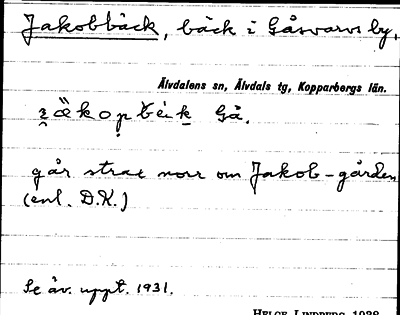 Jakobbäck, bäck i Gåsvarvs by,
Älvdalens sn, Älvdals tg, Kopparbergs län.
Gå.
går strax norr om Jakob-gården
(enl. D.K.)
Se äv. uppt. 1931.
HELGE LINDBERG 1938